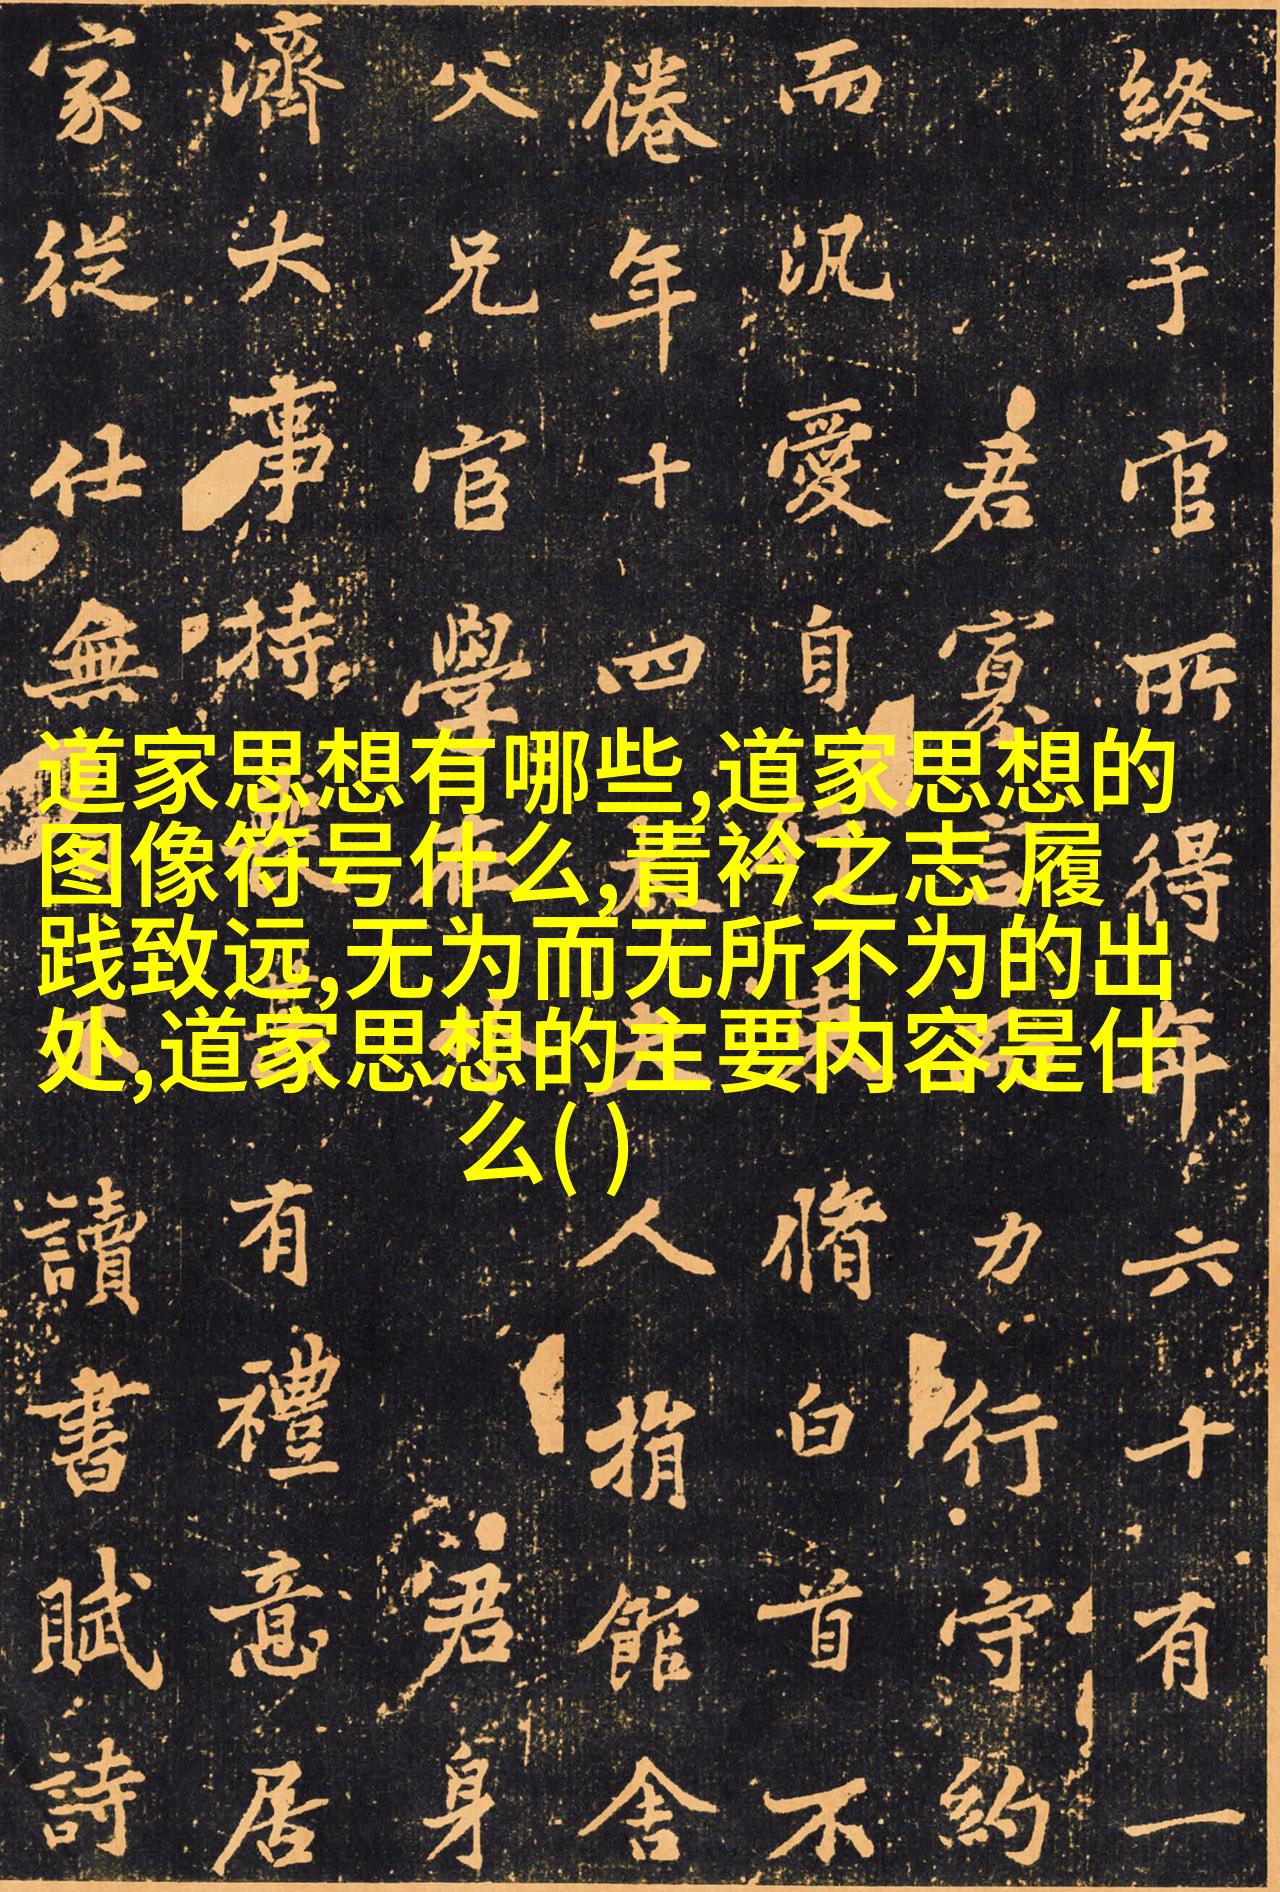 道家思想有哪些,道家思想的
图像符号什么,青衿之志 履
践致远,无为而无所不为的出
处,道家思想的主要内容是什
么( )
終于官所得年六十有一
君寡言力行守約
而汎愛自脩白首不
倦年十四人捐館舍
父兄官學君身
濟大事持有禮意居
家從仕無讀書賦詩